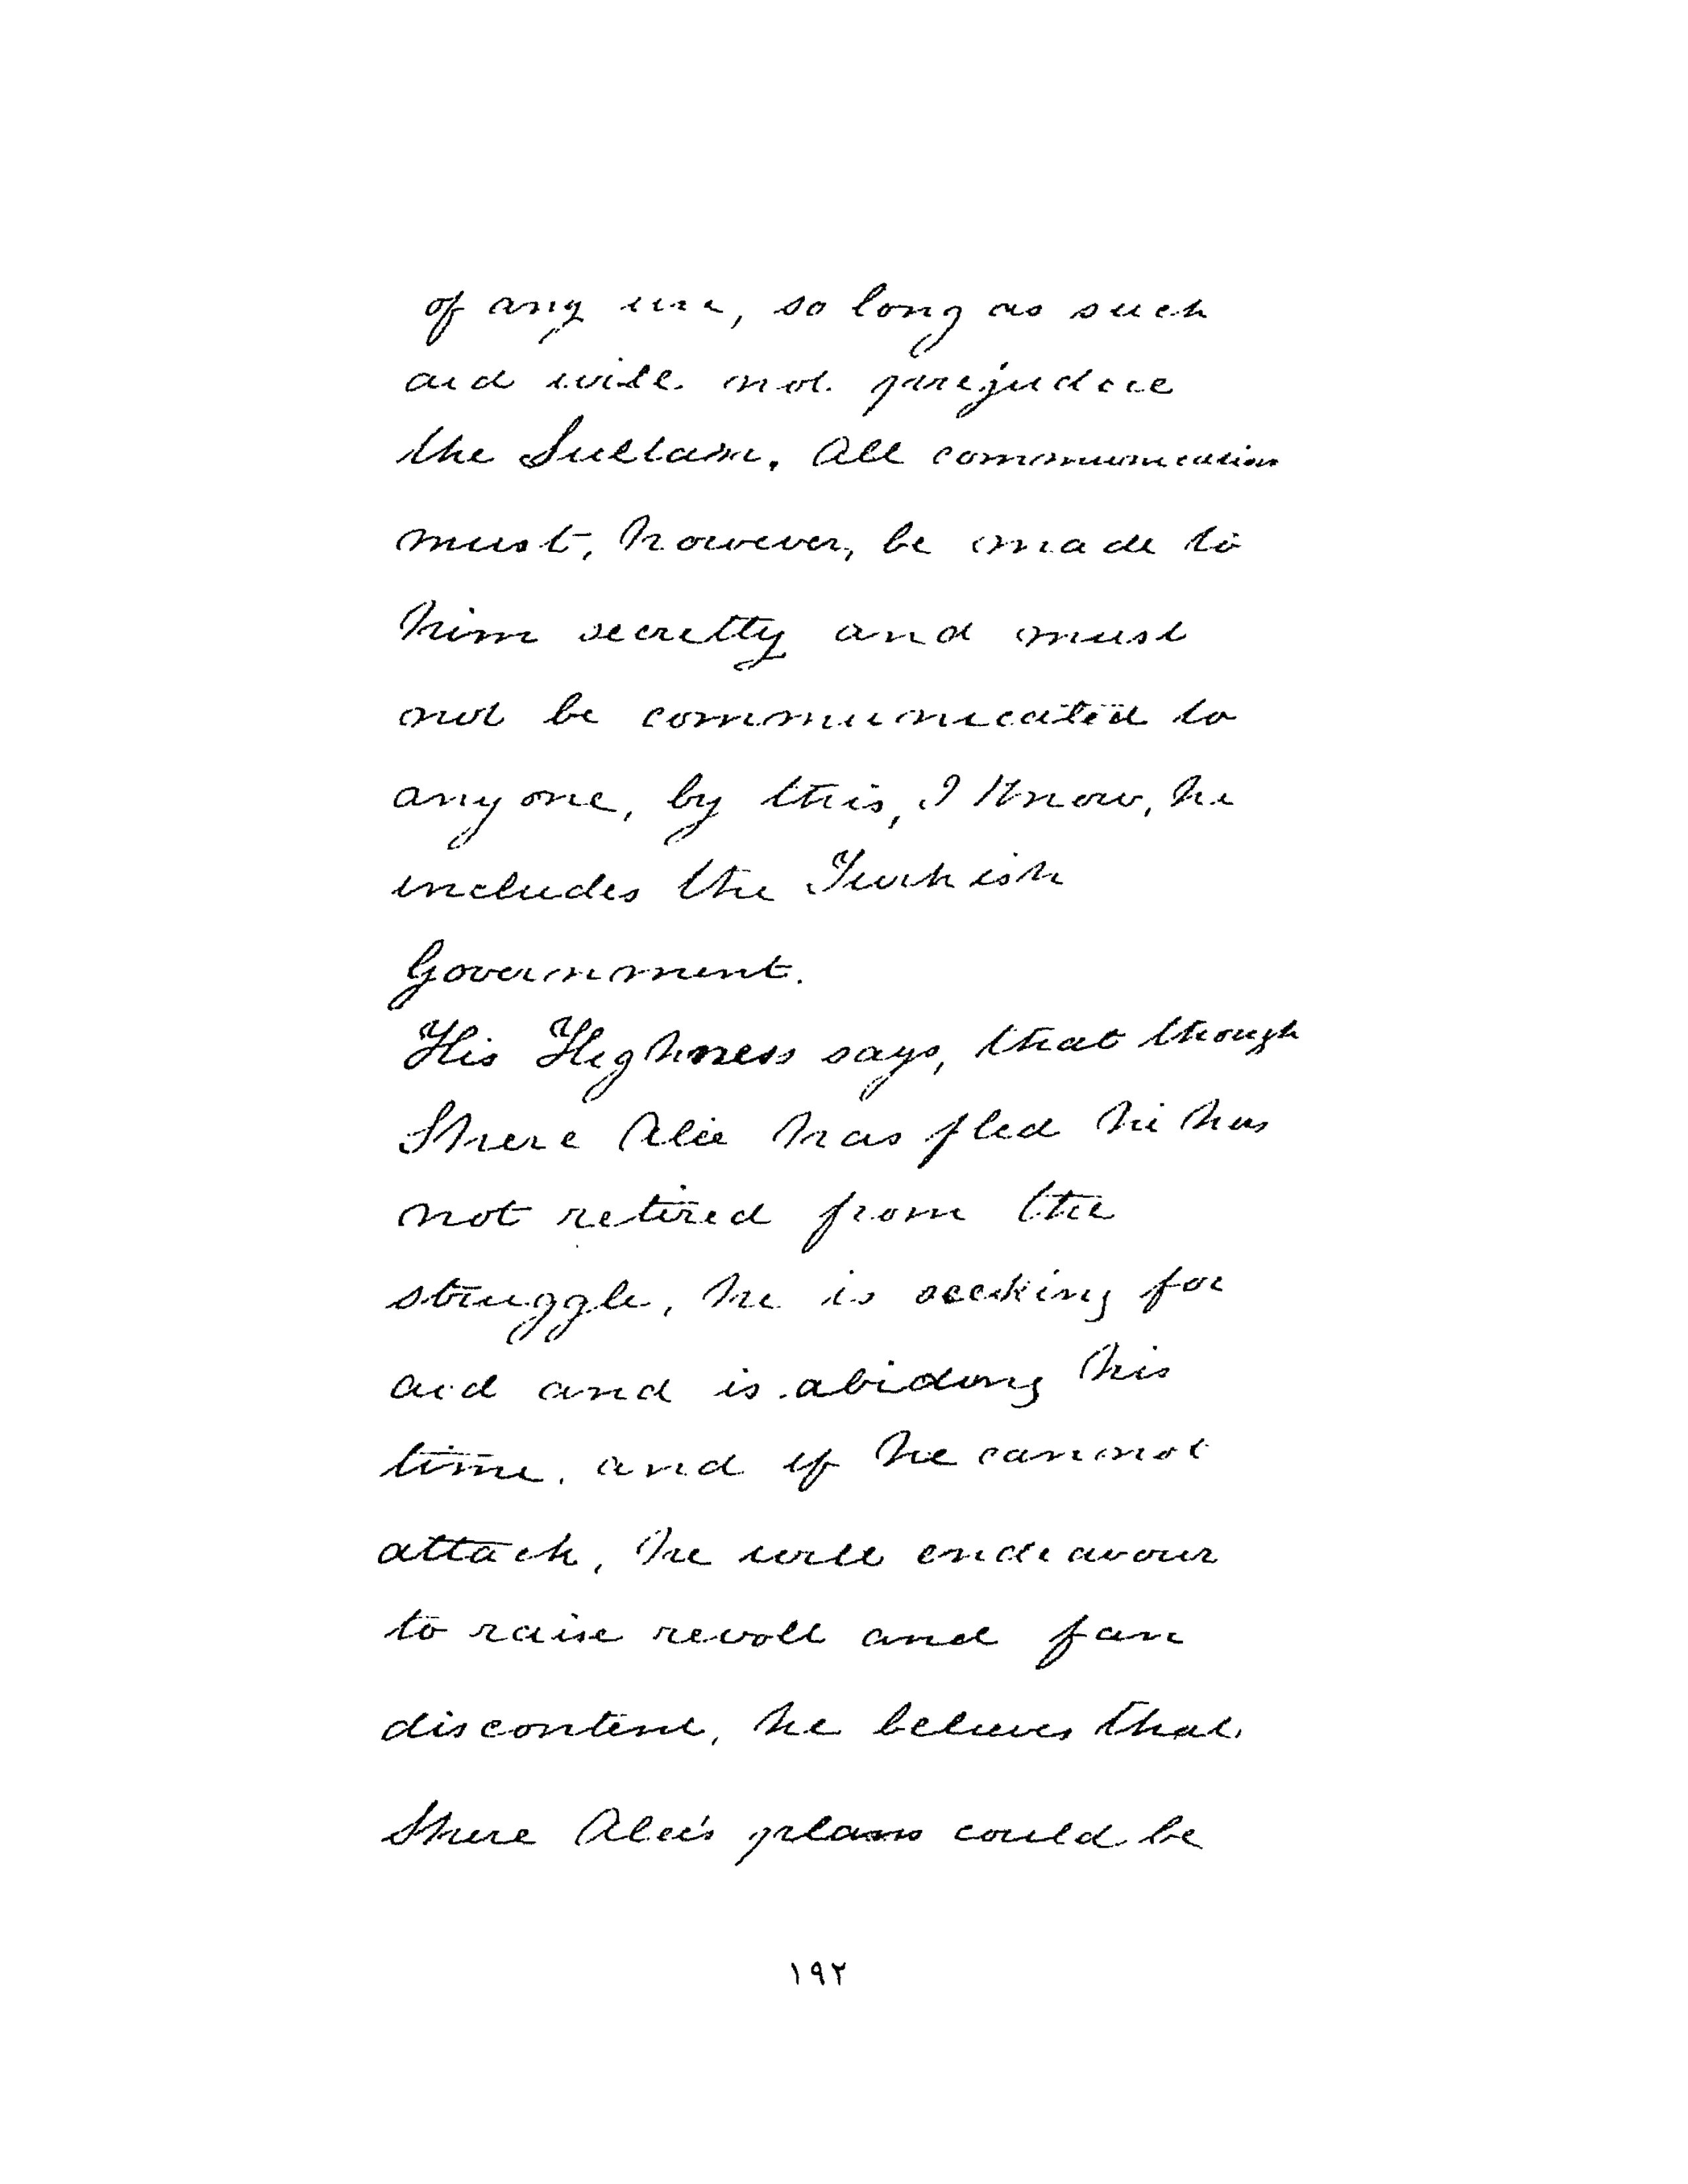 of any use, so long as such
aid will not prejudice
the Sultan. All communication
must, however, be made to
him secretly and must
not be communicated to
any one, by this, I know, he
includes the Turkish
Government.
His Highness says, that though
Shere Alie has fled he has
not retired from the
struggle, he is seeking for
aid and is abiding his
time. and if he cannot
attack, he will endeavour
to raise revolt and fan
discontent, he believes that
Shere Alee's plans could be
١٩٢